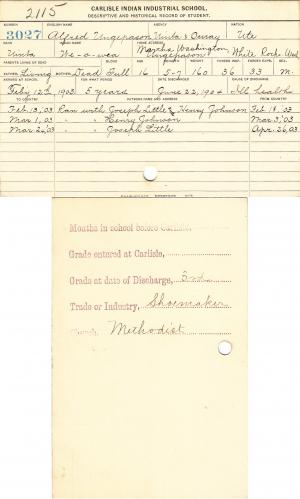 2115
CARLISLE INDIAN INDUSTRIAL SCHOOL.
DESCRIPTIVE AND HISTORICAL RECORD OF STUDENT.
NUMBER ENGLISH NAME AGENCY NATION
3027 Alfred Ungapason Uinta & Ouray Ute
BAND INDIAN NAME HOME ADDRESS
Uinta We-o-wea Washington Ungapason White Rocks
PARENTS LIVING OR DEAD BLOOD AGE HEIGHT WEIGHT FORCED INSP. FORCED EXPR. SEX
FATHER Living MOTHER Dead Full 16 5-7 160 36 33 M.
ARRIVED AT SCHOOL FOR WHAT PERIOD DATE DISCHARGED CAUSE OF DISCHARGE
Feby 12th 1903 5 years June 22, 1904 Ill health
TO COUNTRY PATRONS NAME AND ADDRESS FROM COUNTRY
Feb 13, 03 Ran with Joseph Little & Henry Johnson Feb 18, 03
Mar 1, 03 " " Henry Johnson Mar 3, 03
Mar 26, 03 " " Joseph Little Apr 26, 03
Months in school before Carlisle,
Grade entered at Carlisle,
Grade at date of Discharge, 3rd
Trade or Industry, Shoemaker
Church, Methodist